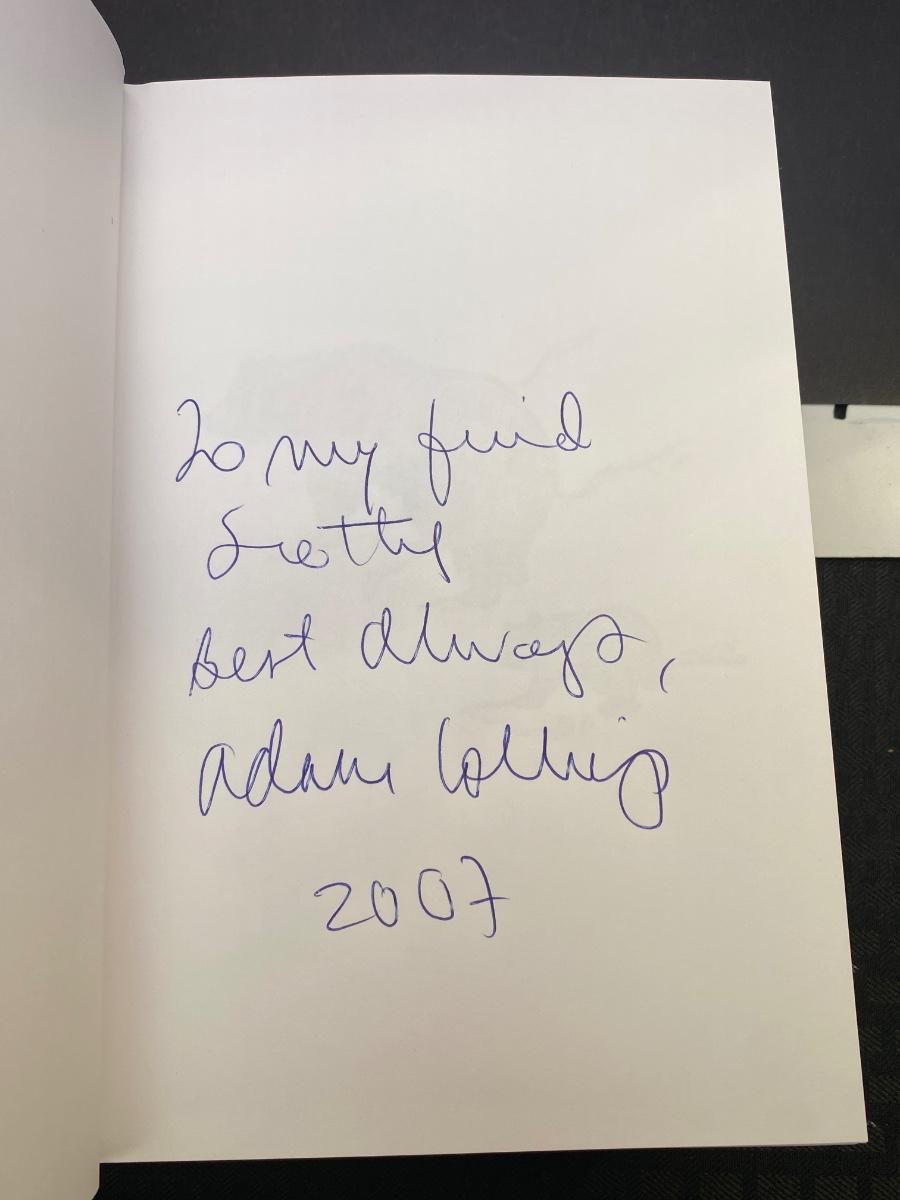 To my friend
Scotty
Best always,
Adam Collins
2007